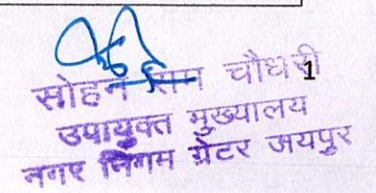 सोहन राम चौधरी
1
उपायुक्त मुख्यालय
नगर निगम ग्रेटर जयपुर